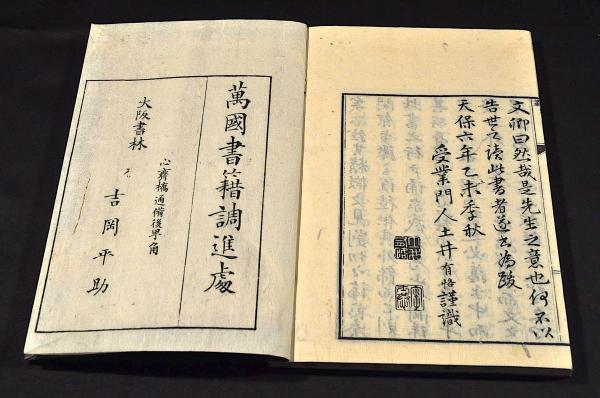 文卿曰然哉是先生之意也何不以
告世之讀此書者遂書為跋
天保六年乙未季秋
受業門人土井有恪謹識
萬國書籍調進處
大阪書林
心齋橋通備後早角
吉岡平助